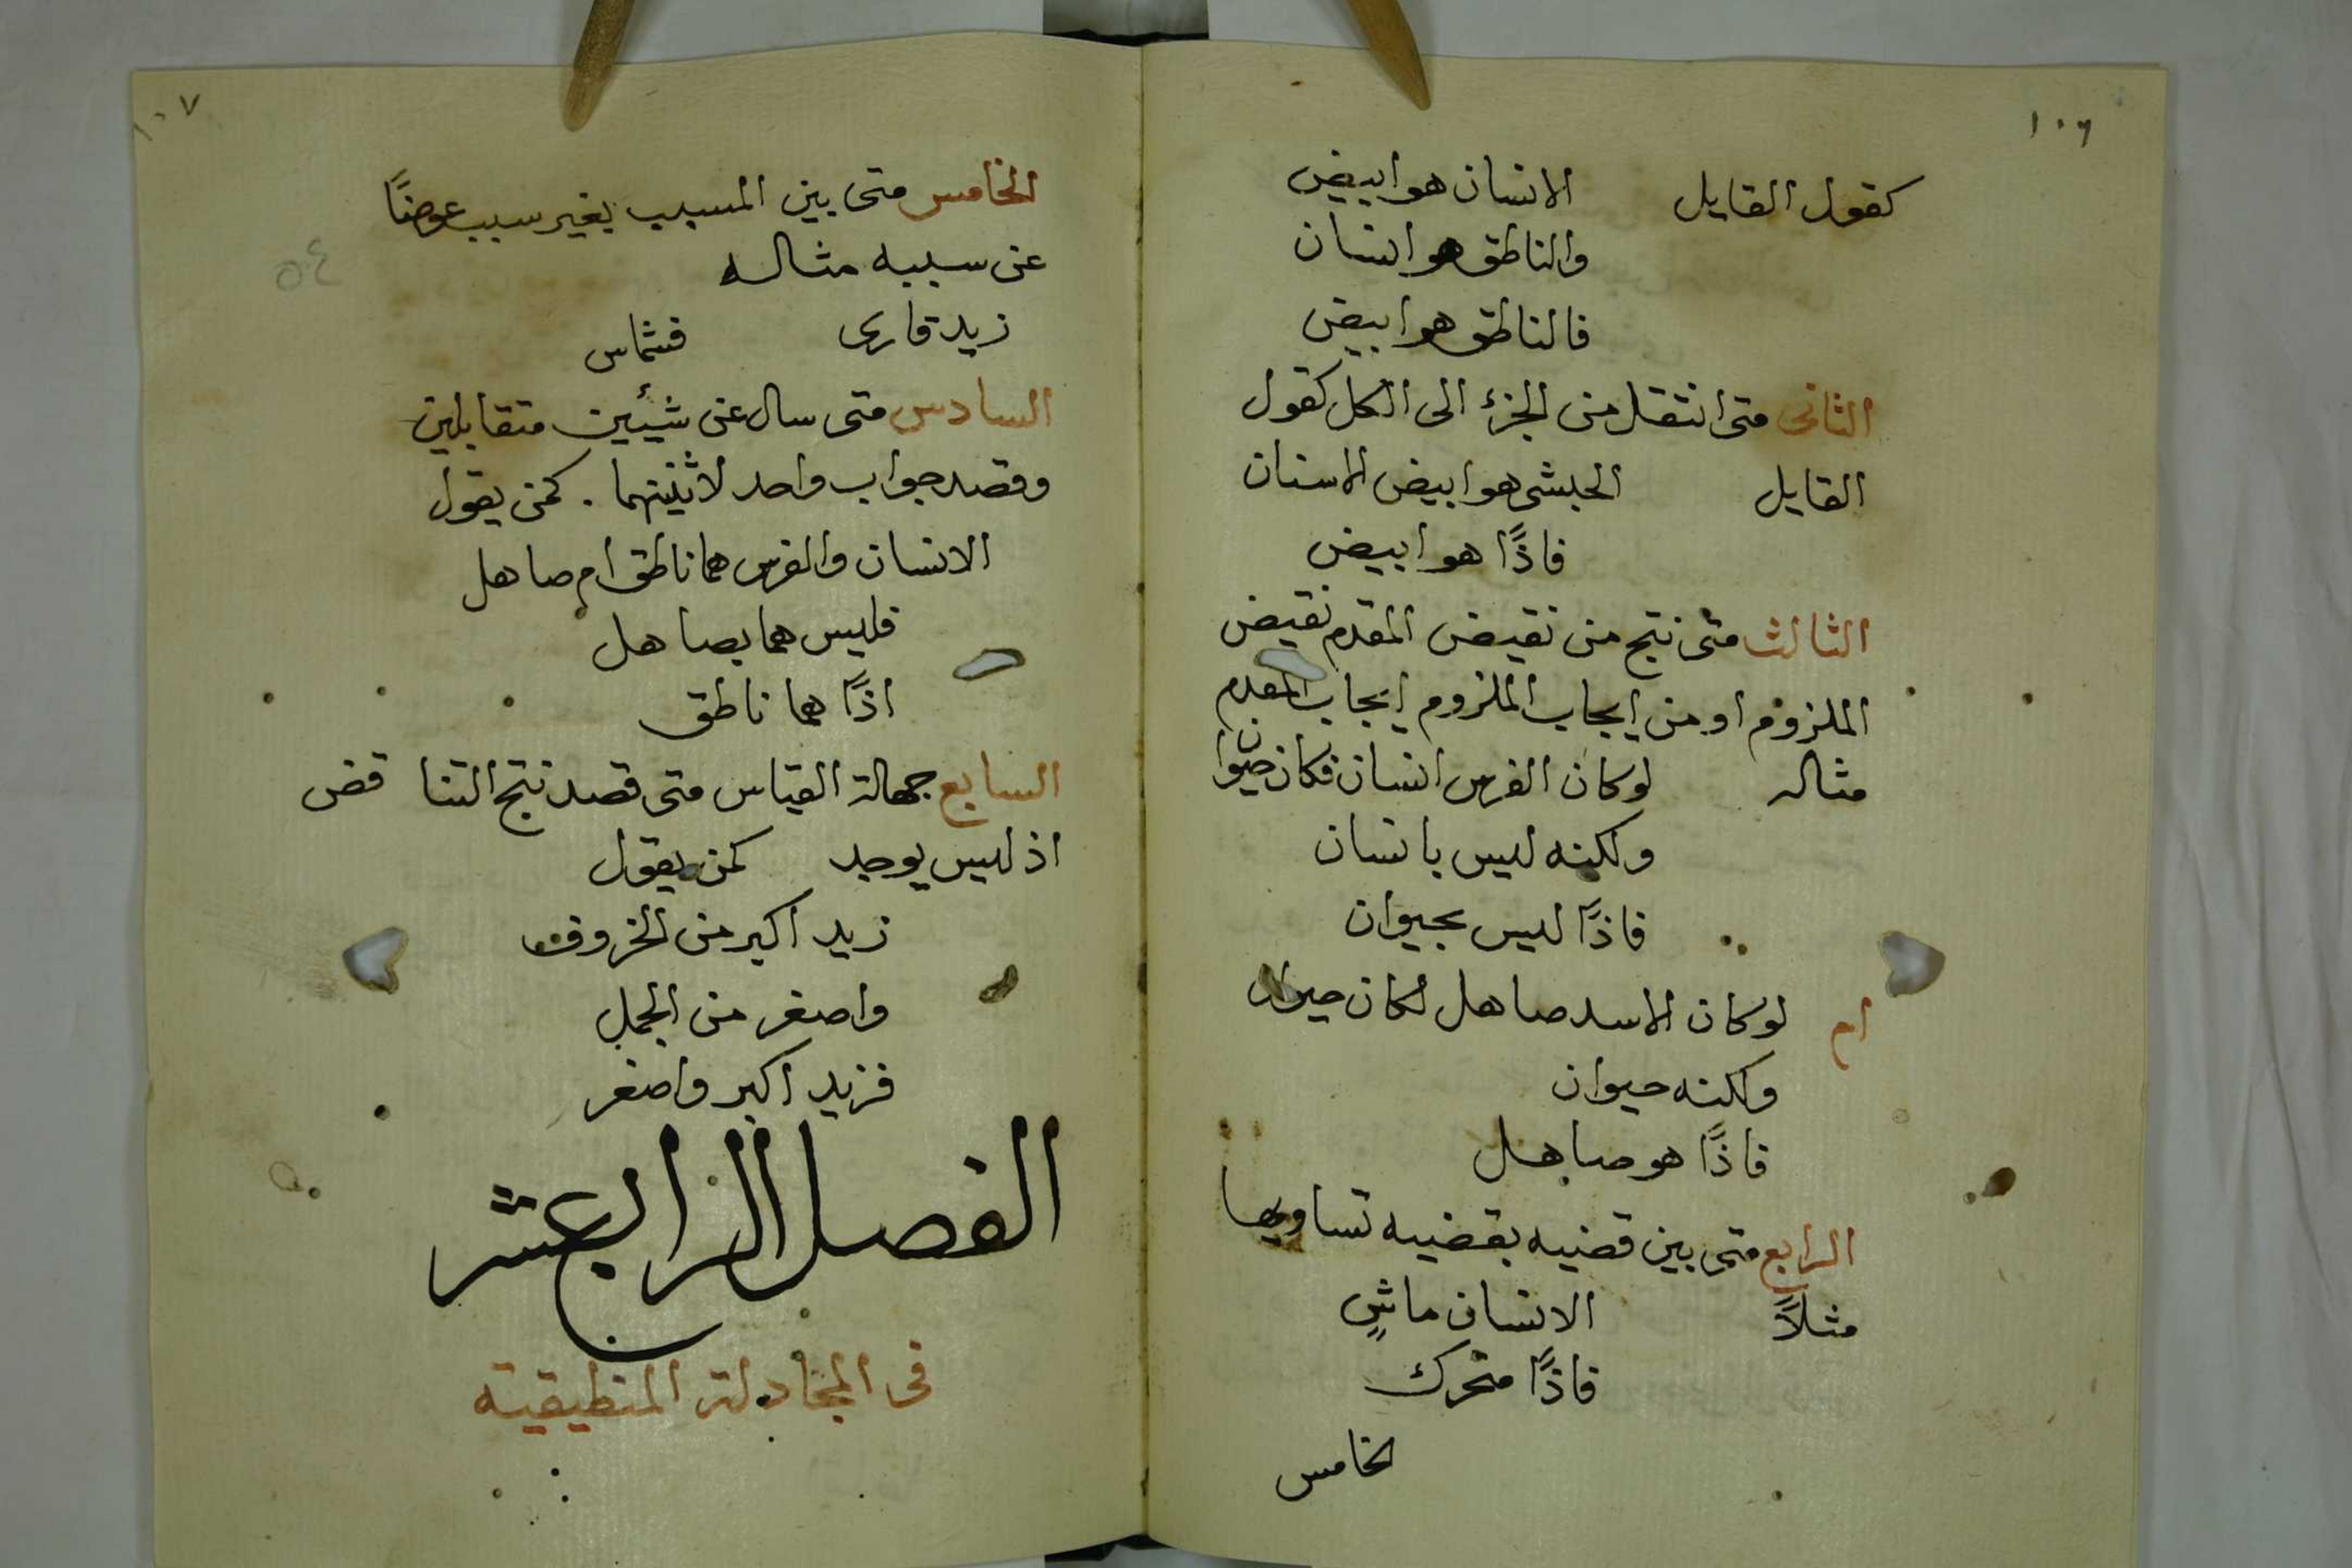 ١٠٦
كقول القايل الانسان هو ابيض
والناطق هو انسان
فالناطق هو ابيض
الثانى متى انتقل من الجزء الى الكل كقول
القايل الحبشى هو ابيض الاسنان
فاذًا هو ابيض
الثالث متى نتج من نقيض المقدم نقيض
الملزوم او من ايجاب الملزوم ايجاب المقدم
مثاله لو كان الفرس انسان فكان حيوان
ولكنه ليس بانسان
فاذًا ليس بحيوان
ام لو كان الاسد صاهل لكان حيوان
ولكنه حيوان
فاذًا هو صاهل
الرابع متى بين قضيه بقضيه تساويها
مثلاً الانسان ماشٍ
فاذًا متحرك
لخامس
١٠٧
الخامس متى بين المسبب بغير سبب عوضًا
عن سببه مثاله
٥٤
زيد قارى فشماس
السادس متى سال عن شيئين متقابلين
وقصد جواب واحد لاثنينهما . كمن يقول
الانسان والفرس هما ناطق ام صاهل
فليس هما بصاهل
اذًا هما ناطق
السابع جهالة القياس متى قصد نتج التناقض
اذ ليس يوجد كمن يقول
زيد اكبر من الخروف
واصغر من الجمل
فزيد اكبر واصغر
الفصل الرابع عشر
فى المجادلة المنطيقيته